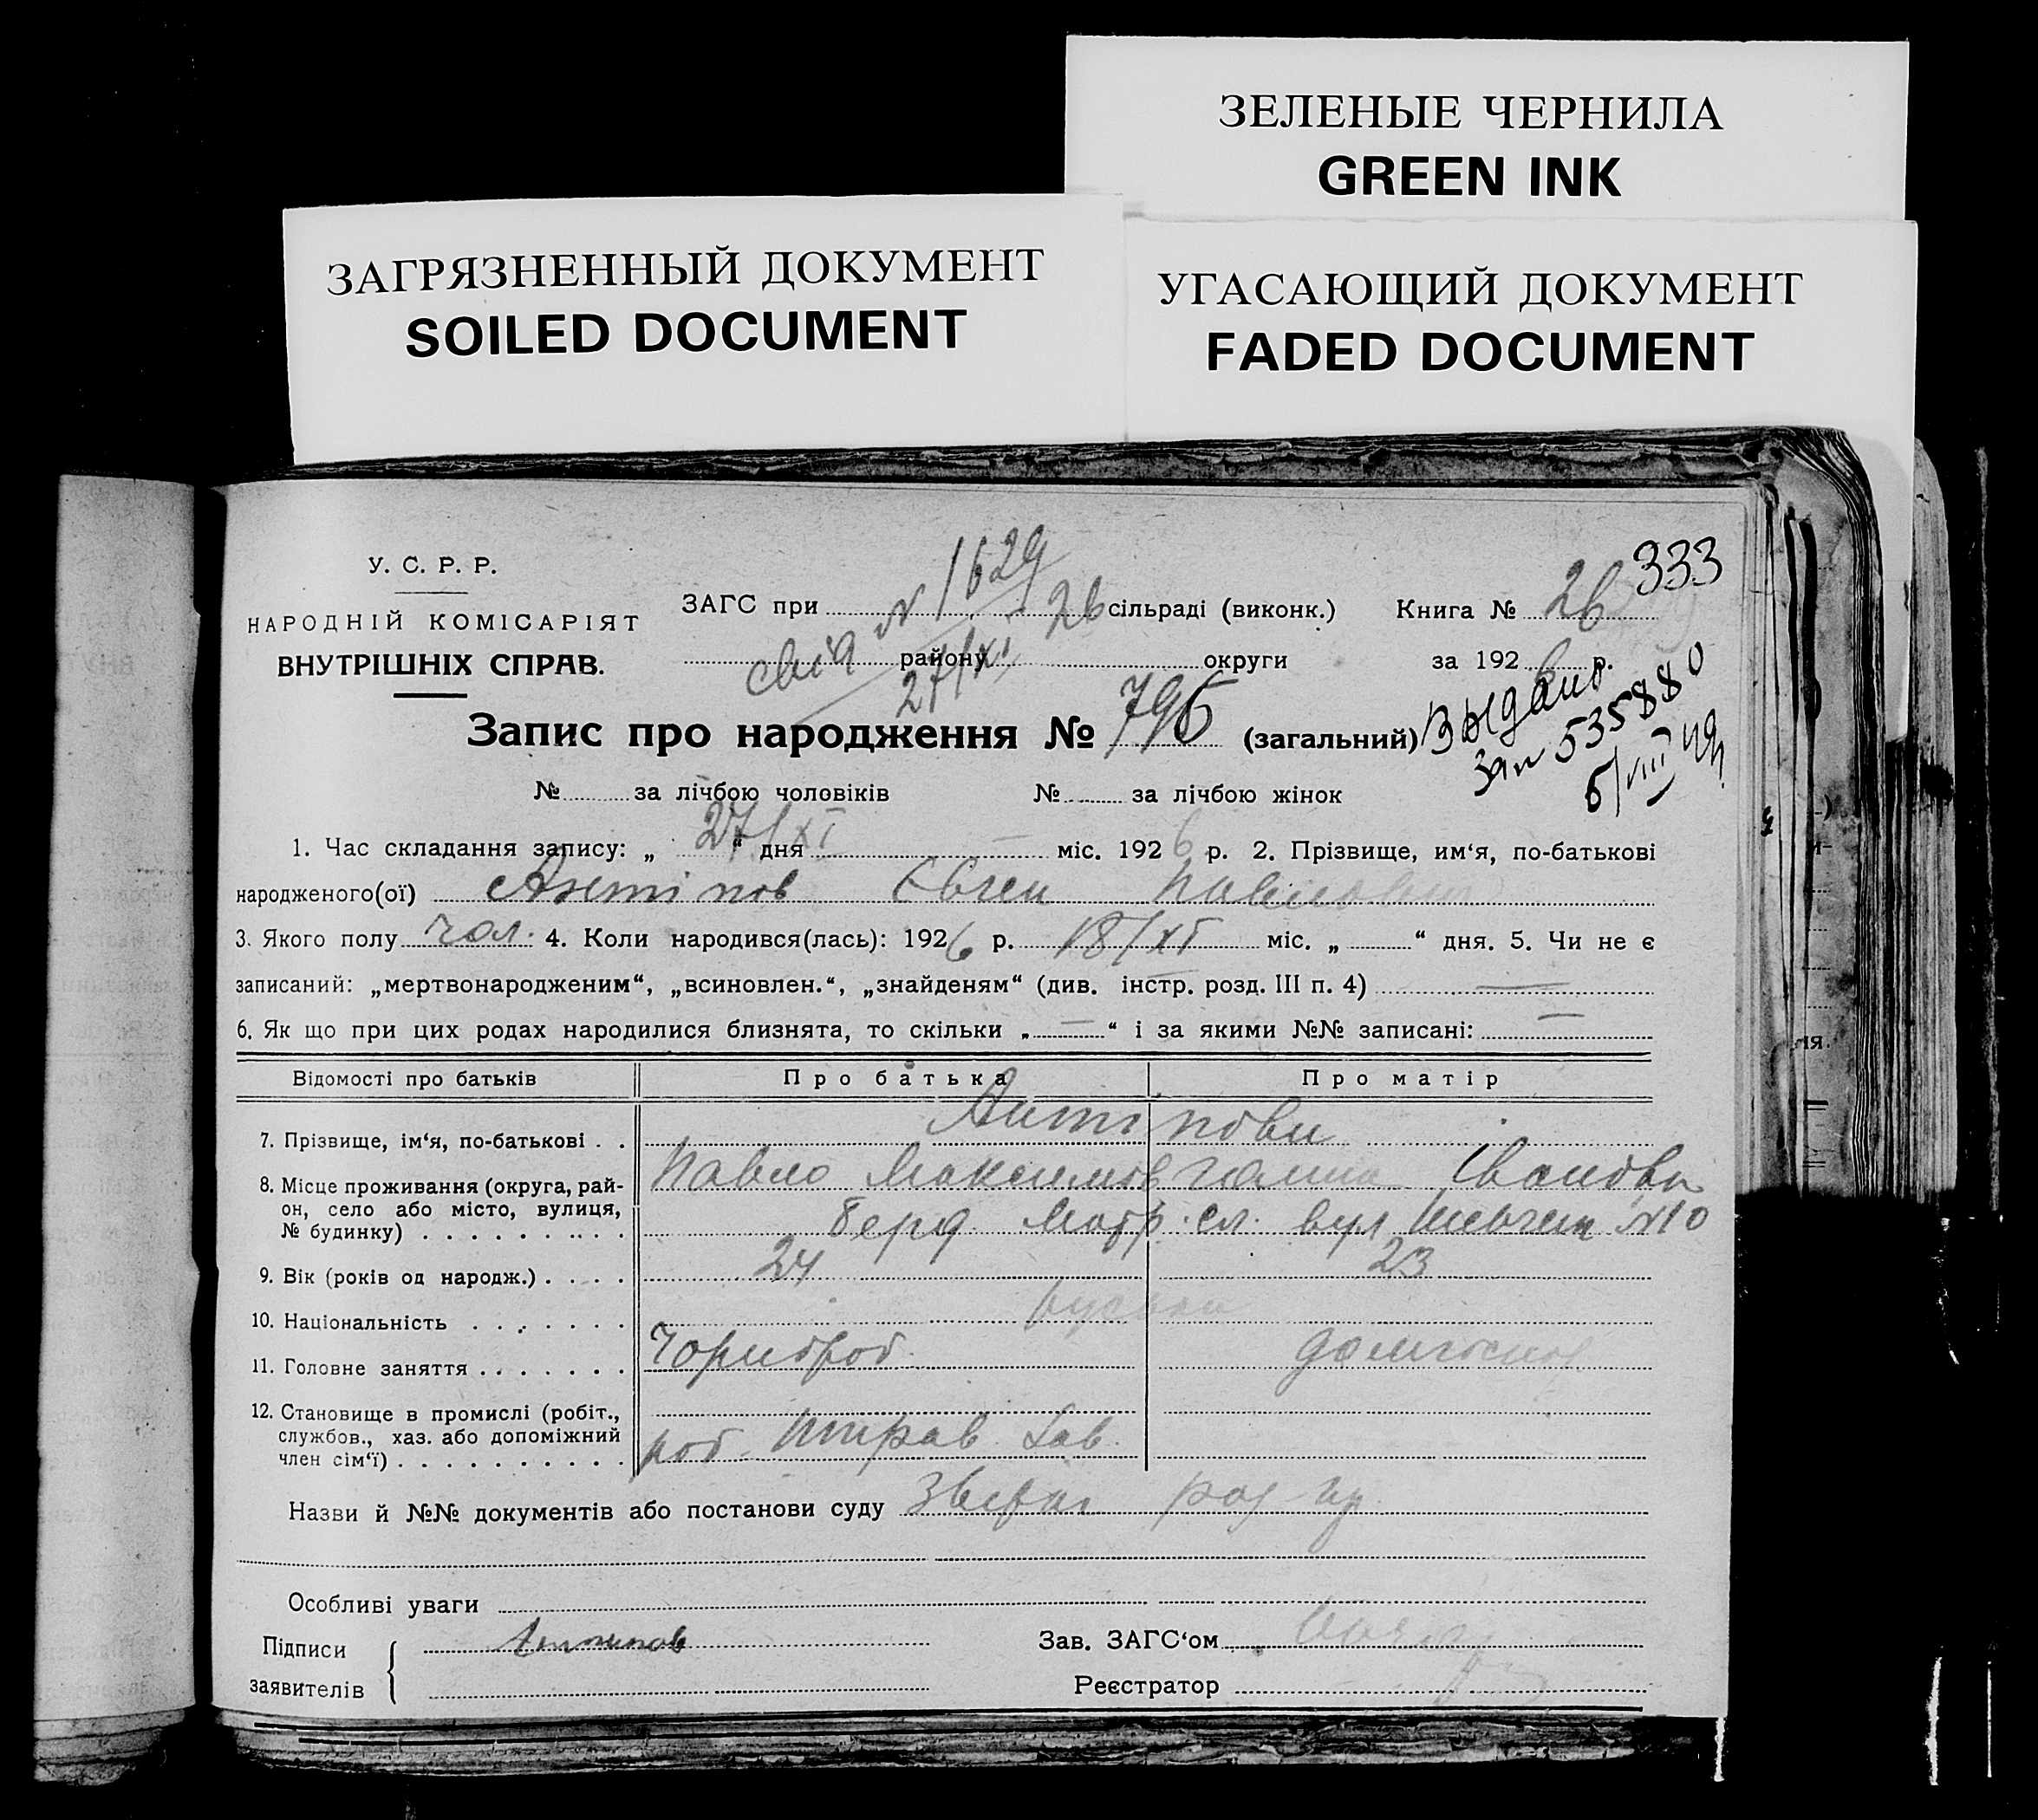 ЗЕЛЕНЫЕ ЧЕРНИЛА
GREEN INK
ЗАГРЯЗНЕННЫЙ ДОКУМЕНТ
SOILED DOCUMENT
УГАСАЮЩИЙ ДОКУМЕНТ
FADED DOCUMENT
333
У. С. Р. Р.
НАРОДНІЙ КОМІСАРІЯТ
ВНУТРІШНІХ СПРАВ.
№ 1629
ЗАГС при 26 сільраді (виконк.) Книга № 26
свід району округи за 192 6 р.
27/XI
Запис про народження № 796 (загальний)
Выдано
зап 535880
6/VIII 49
№ за лічбою чоловіків № за лічбою жінок
1. Час складання запису: „ 27/XI “ дня — міс. 192 6 р. 2. Прізвище, им‘я, по-батькові
народженого(ої) Антіпов Євген Павлович
3. Якого полу чол. 4. Коли народився(лась): 192 6 р. 18/XI міс. „ “ дня. 5. Чи не є
записаний: „мертвонародженим“, „всиновлен.“, „знайденям“ (див. інстр. розд. III п. 4) —
6. Як що при цих родах народилися близнята, то скільки „ — “ і за якими №№ записані: —
Відомості про батьків Про батька Про матір
7. Прізвище, ім‘я, по-батькові . . Антіпови
Павло Максимов Ганна Іванівн
8. Місце проживання (округа, рай-
он, село або місто, вулиця,
№ будинку) . . . . . . . . . . Берд. сл. вул Шевчен №10
9. Вік (років од народж.) . . . . 24 23
10. Національність . . . . . . .
11. Головне заняття . . . . . . . Чорнороб. домгоспод
12. Становище в промислі (робіт.,
службов., хаз. або допоміжний
член сім‘ї) . . . . . . . . . . роб.
Назви й №№ документів або постанови суду
Особливі уваги
Підписи Антипов Зав. ЗАГС‘ом
заявителів Реєстратор